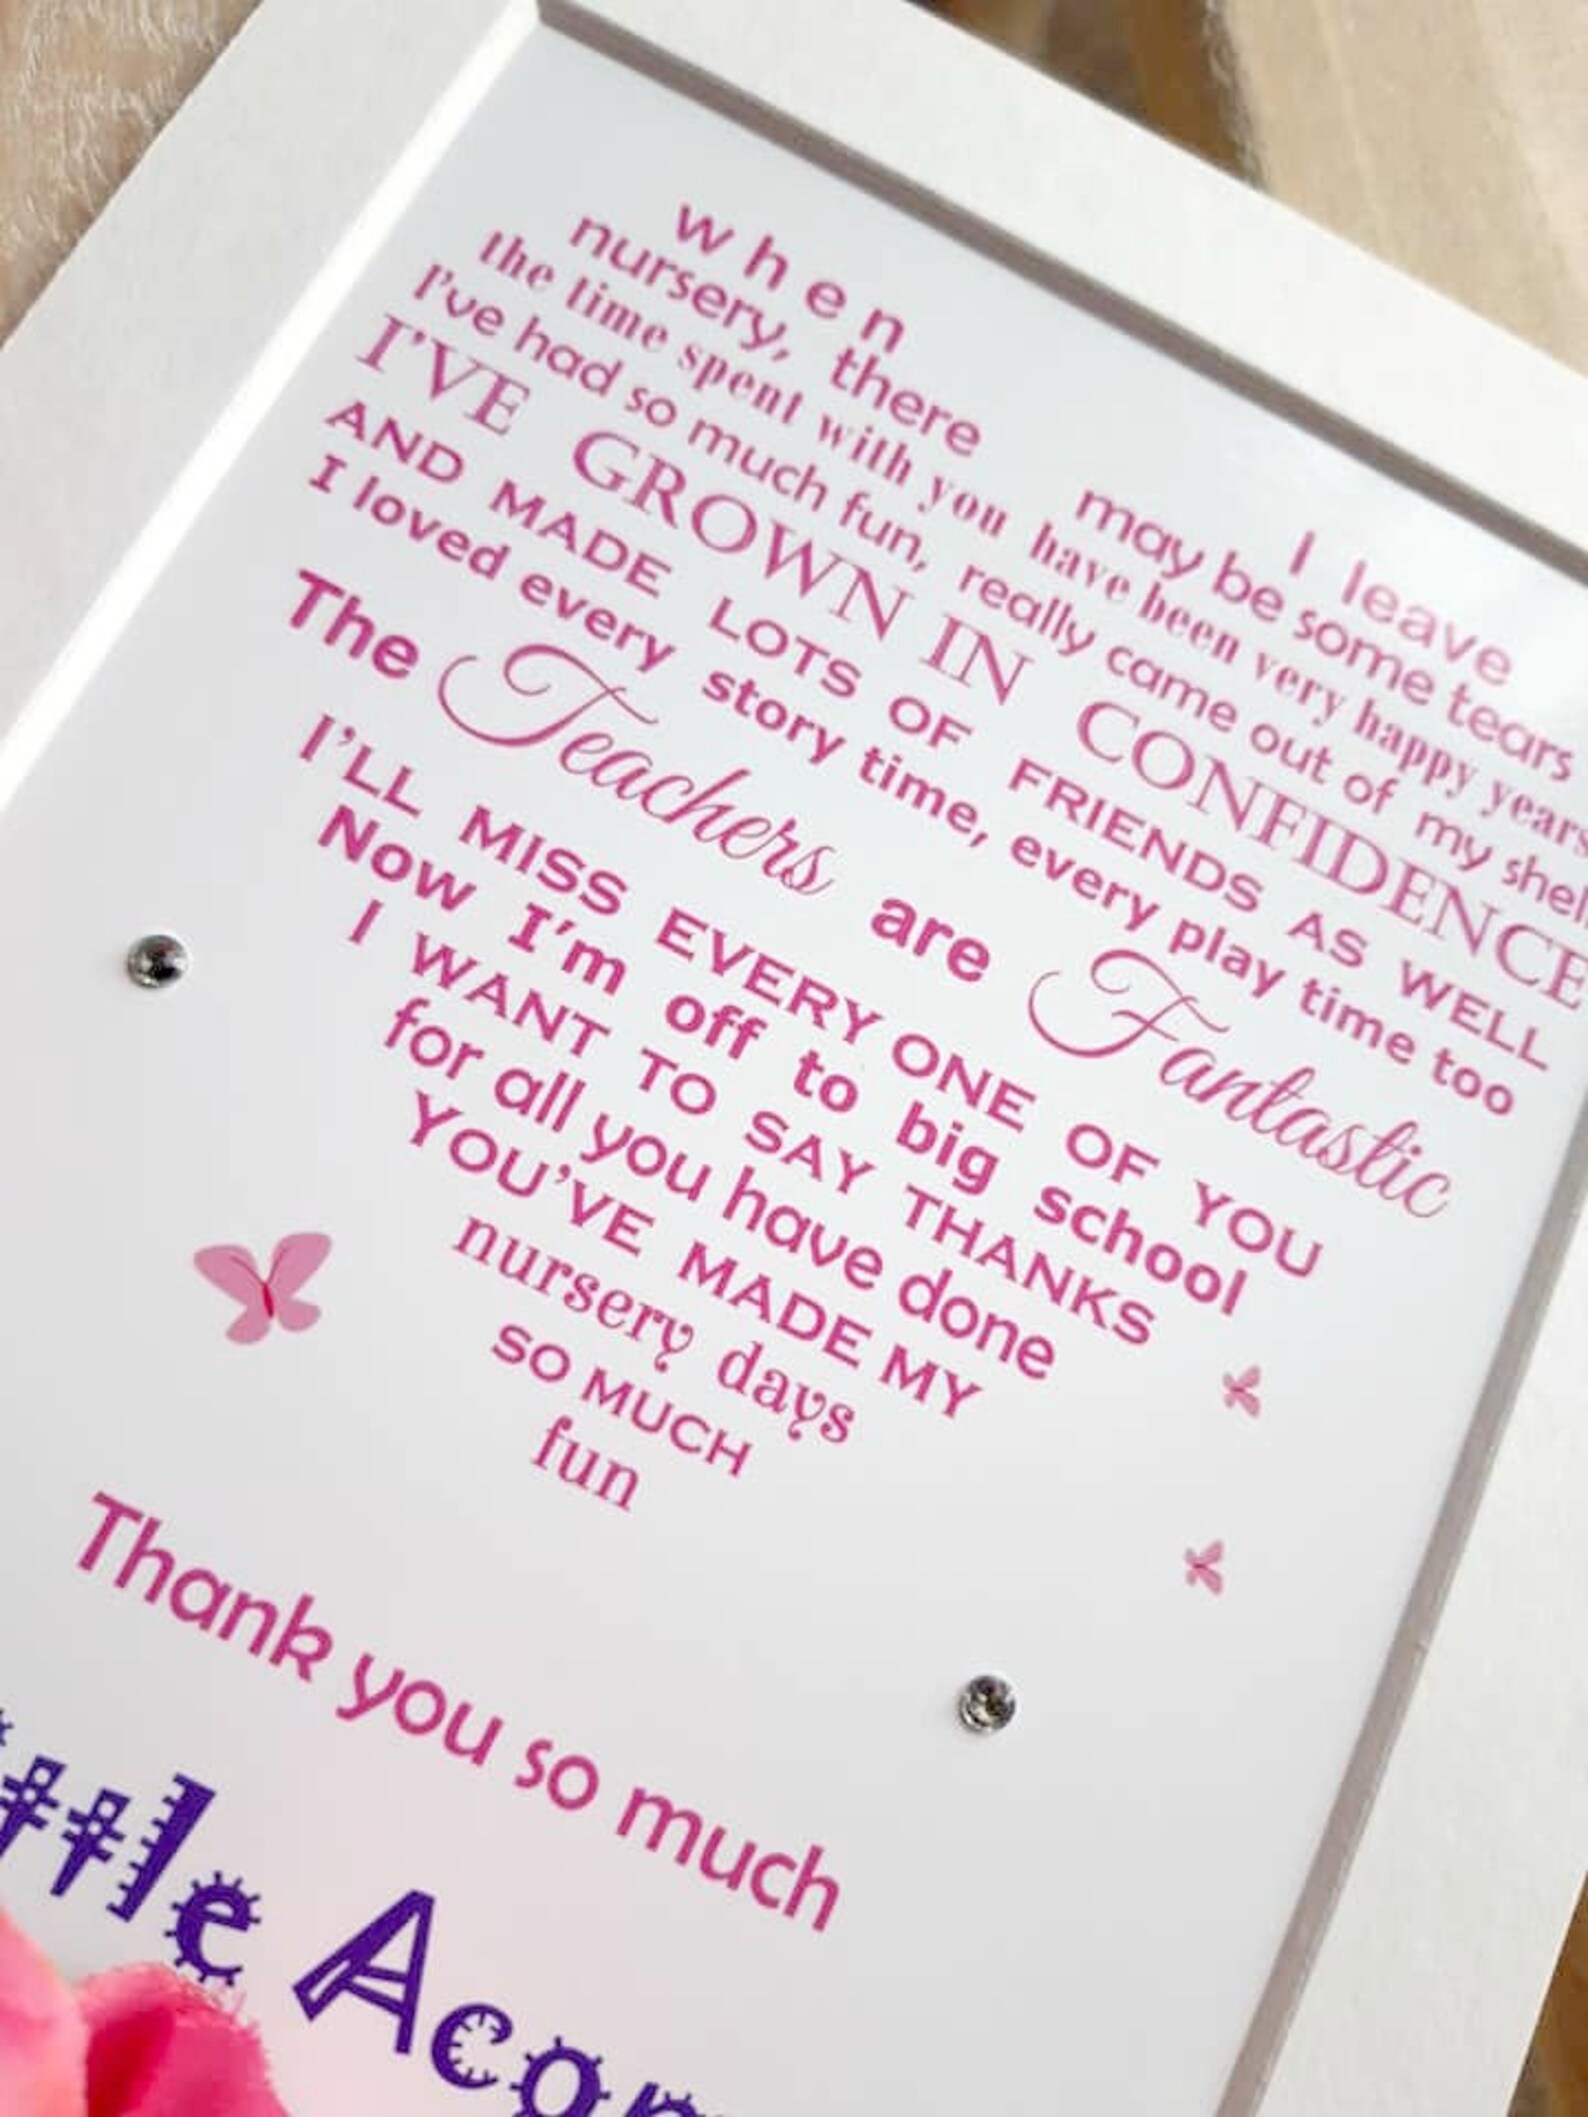 when I leave
nursery, there may be some tears
the time spent with you have been very happy years
I've had so much fun, really came out of my shell
I'VE GROWN IN CONFIDENCE
AND MADE LOTS OF FRIENDS AS WELL
I loved every story time, every play time too
The Teachers are Fantastic
I'LL MISS EVERY ONE OF YOU
Now I'm off to big school
I WANT TO SAY THANKS
for all you have done
YOU'VE MADE MY
nursery days
SO MUCH
fun
Thank you so much
ttle Acor